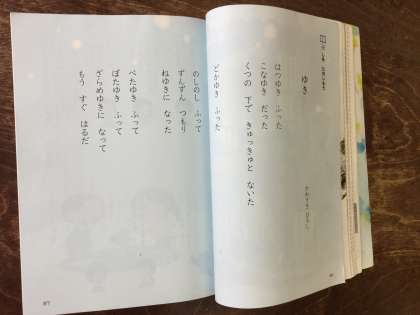 ゆき
かわさき ひろし
はつゆき ふった
こなゆき だった
くつの 下で きゅっきゅと ないた
どかゆき ふった
のしのし ふって
ずんずん つもり
ねゆきに なった
べたゆき ふって
ぼたゆき ふって
ざらめゆきに なって
もう すぐ はるだ
87